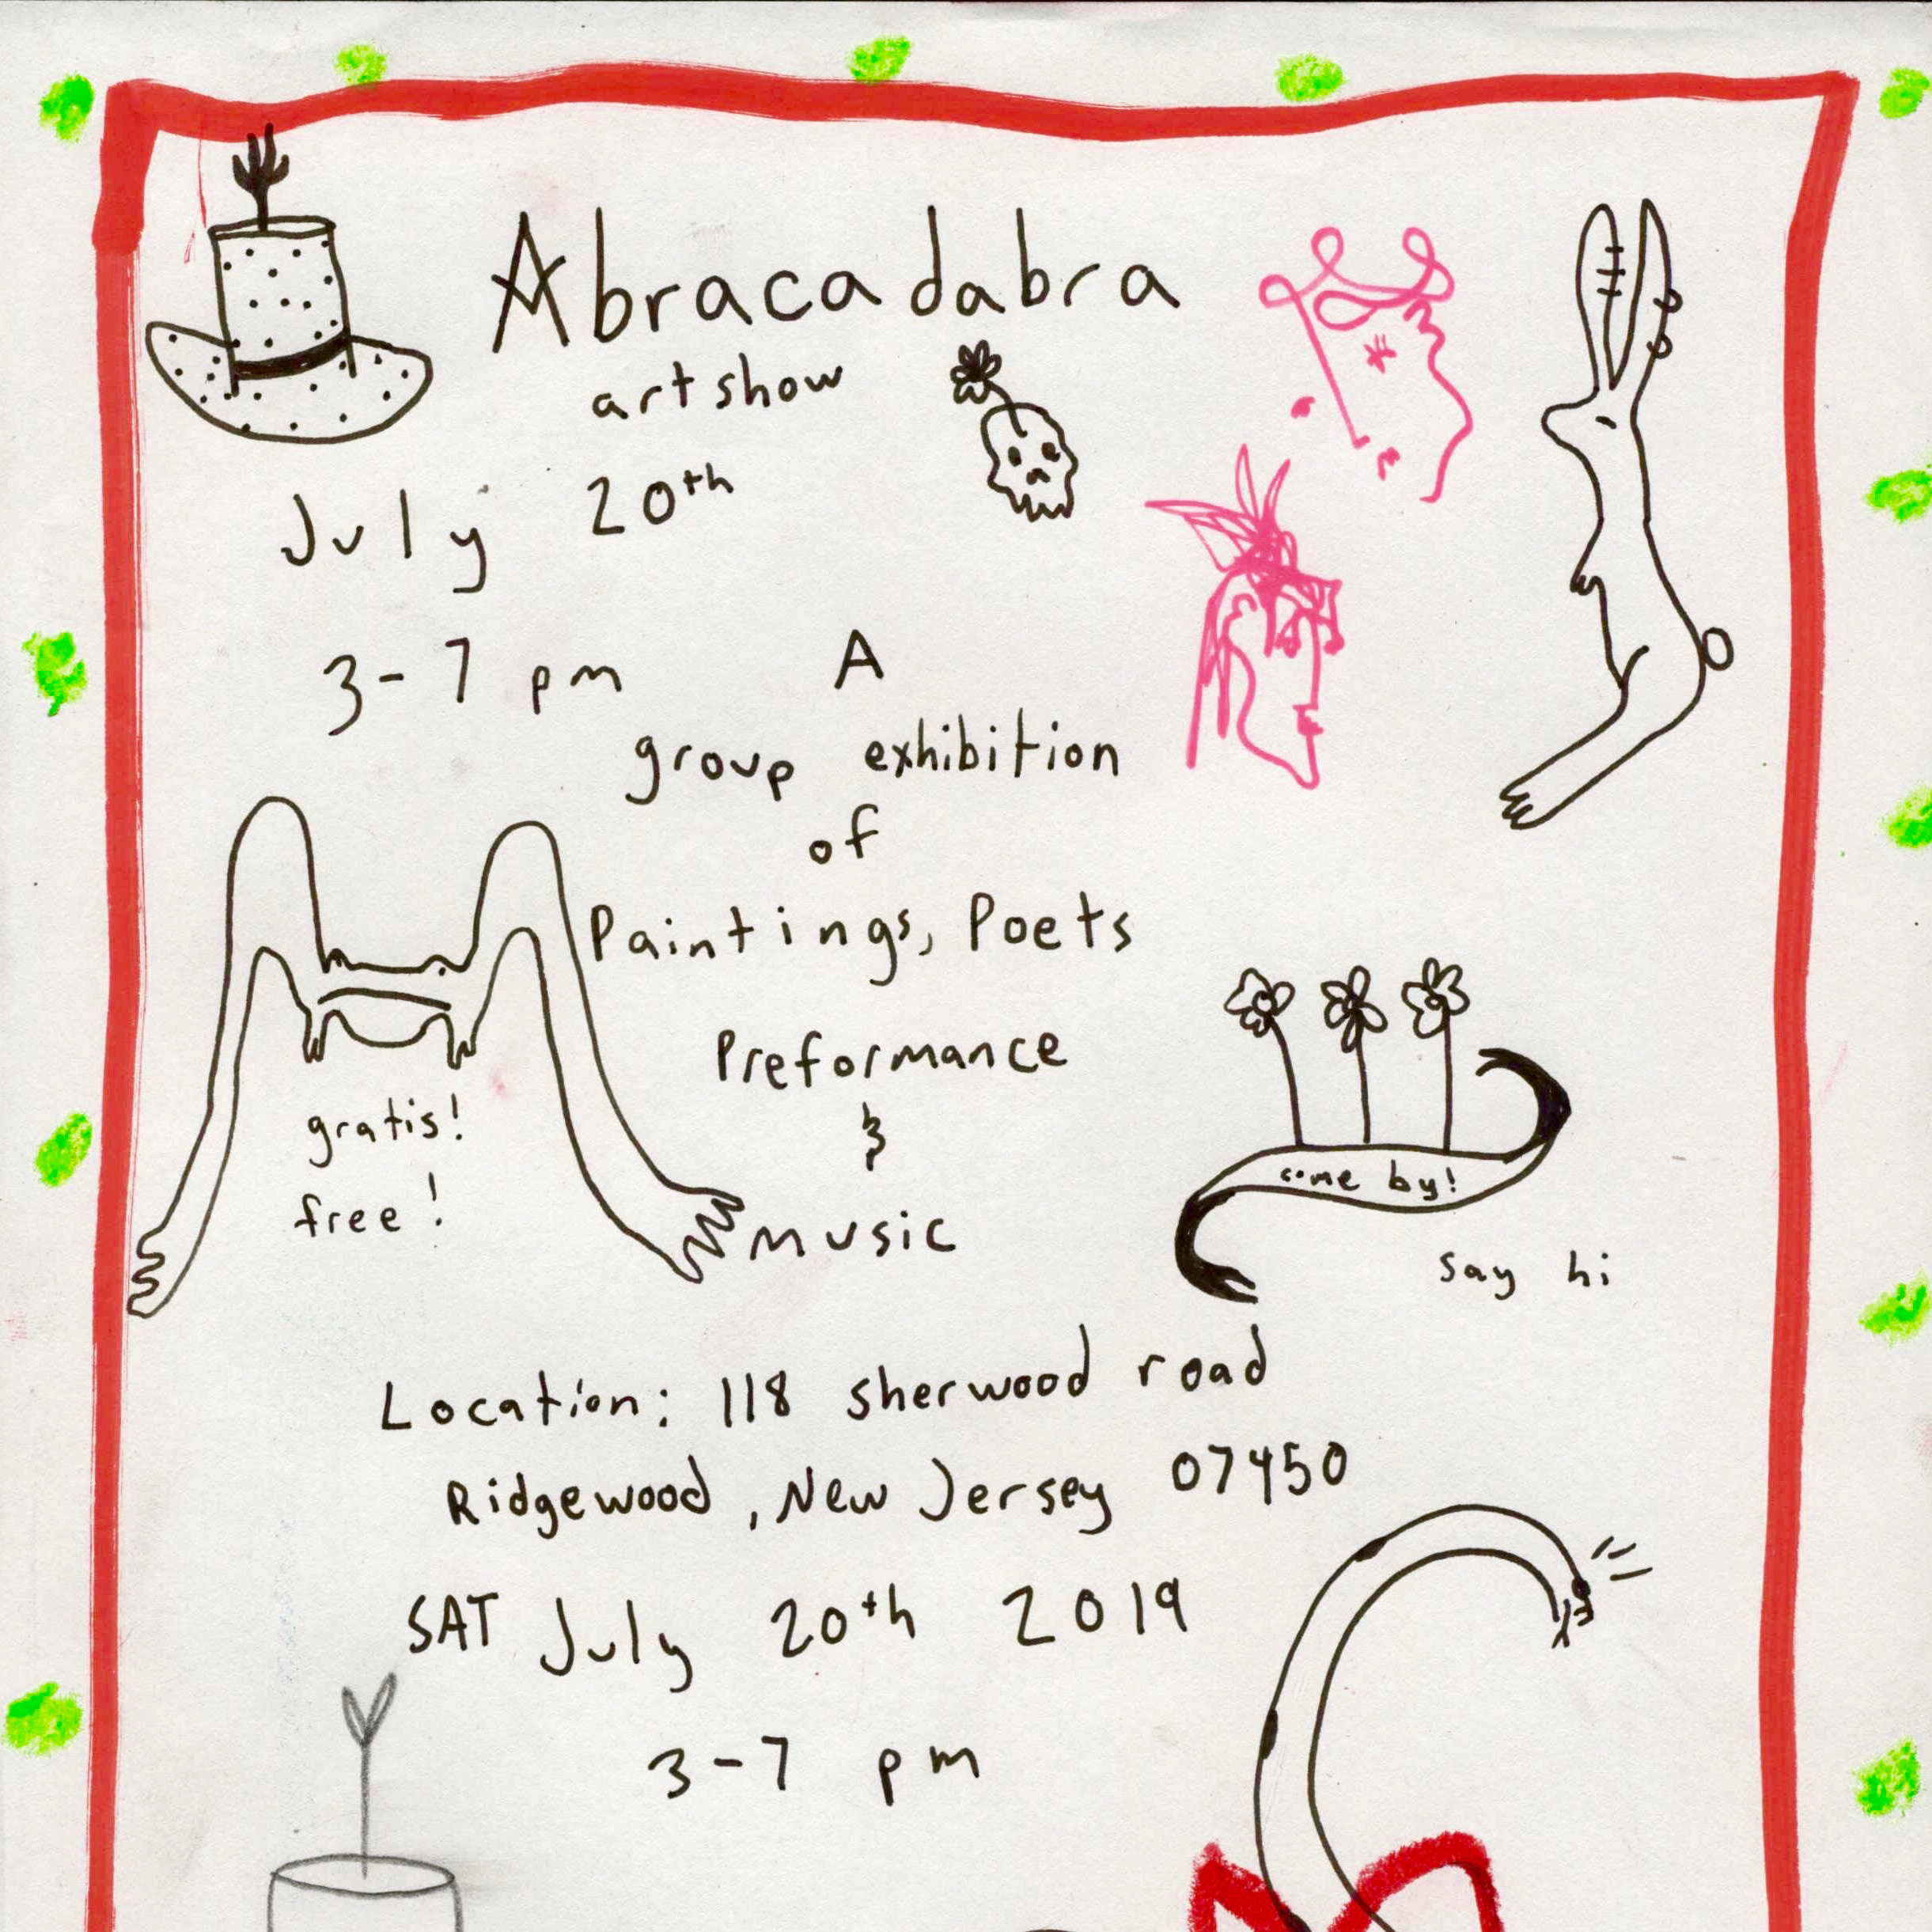 Abracadabra
art show
July 20th
3-7 pm
A
group exhibition
of
Paintings, Poets
Preformance
&
music
gratis!
free!
come by!
say hi
Location: 118 sherwood road
Ridgewood, New Jersey 07450
SAT July 20th 2019
3-7 pm